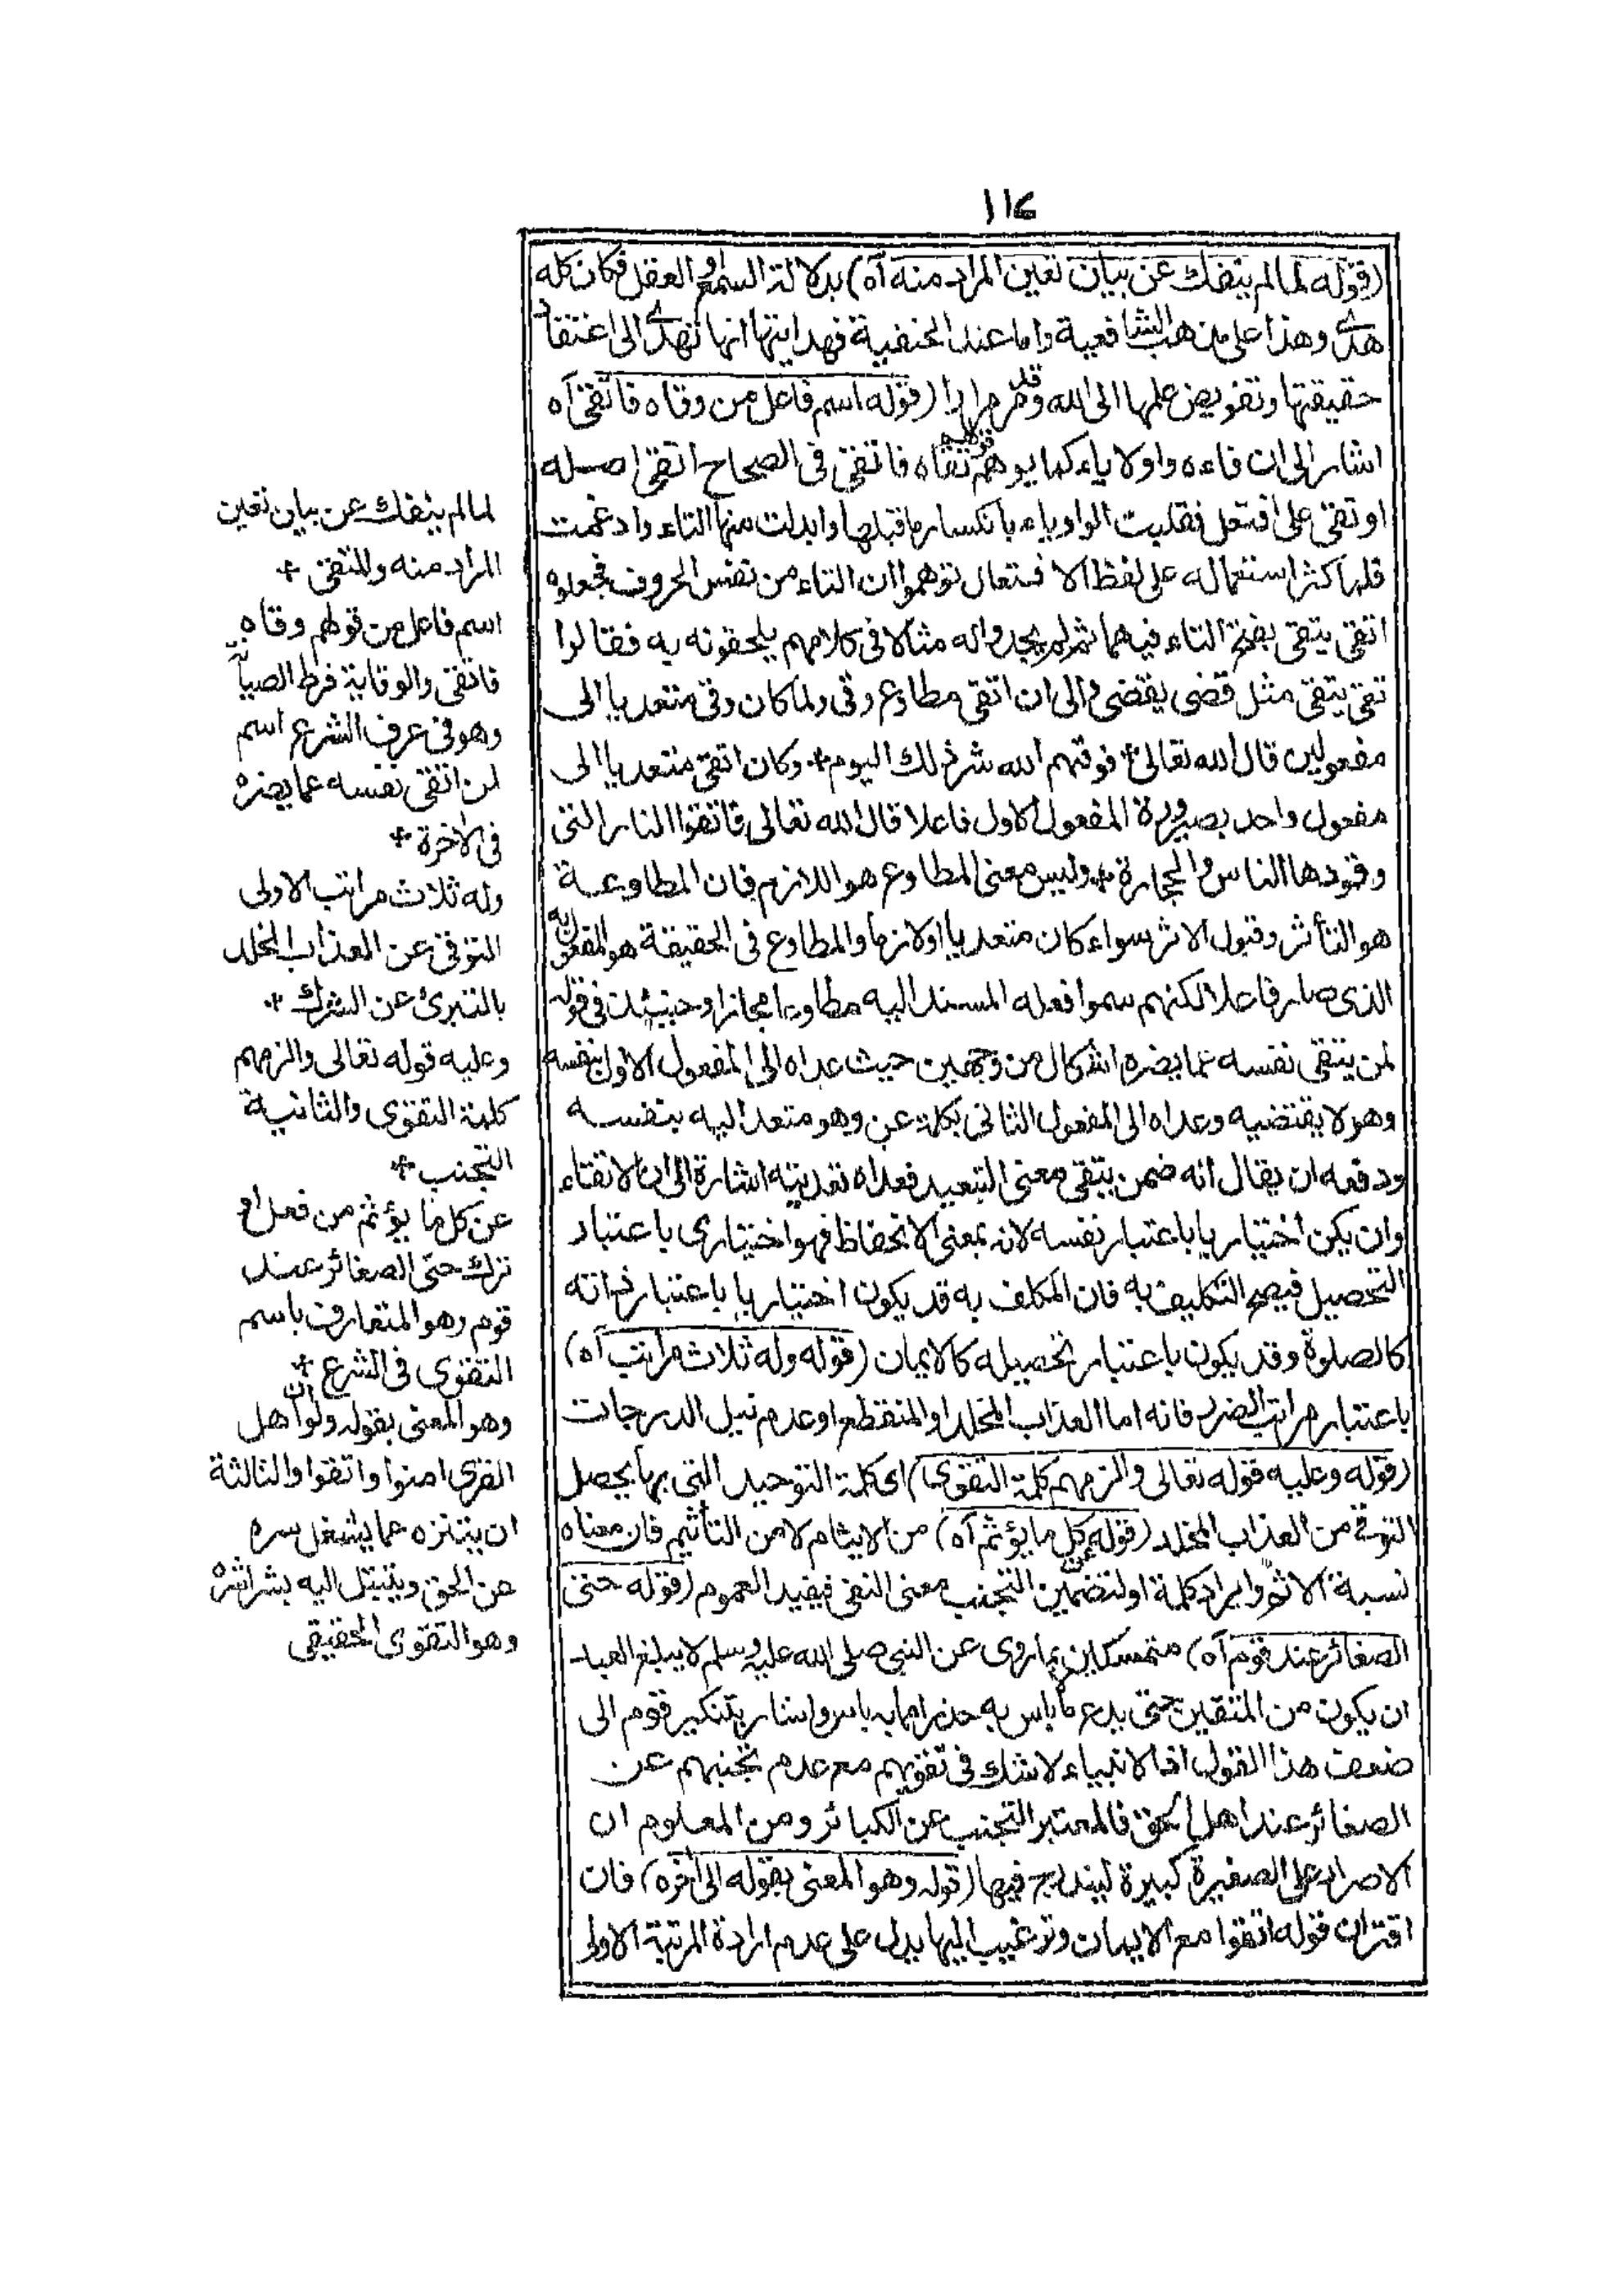 ١١٤
(قوله لما لم ينفك عن بيان تعين المراد منه آه) بدلالة السمع او العقل فكان كله
هدى وهذا على مذهب الشافعية واما عند الحنفية فهدايتها انها تهدى الى اعتقاد
حقيقتها وتفويض علمها الى الله وقد مر مرارا (قوله اسم فاعل من وقاه فاتقى آه
اشار الى ان فاءه واو لا ياء كما يوهم قولهم تقاه فاتقى فى الصحاح اتقى اصله
اوتقى على افتعل فقلبت الواو ياء بانكسار ما قبلها وابدلت منها التاء وادغمت
فلما كثر استعماله على لفظ الافتعال توهموا ان التاء من نفس الحروف فجعلوه
اتقى يتقى بفتح التاء فيهما ثم لم يجدوا له مثالا فى كلامهم يلحقونه به فقالوا
تقى يتقى مثل قضى يقضى الى ان اتقى مطاوع وقى ولما كان وقى متعديا الى
مفعولين قال الله تعالى + فوقيهم الله شر ذلك اليوم + وكان اتقى متعديا الى
مفعول واحد بصيرورة المفعول الاول فاعلا قال الله تعالى فاتقوا النار التى
وقودها الناس والحجارة + وليس معنى المطاوع هو اللازم فان المطاوعة
هو التأثر وقبول الاثر سواء كان متعديا او لازما والمطاوع فى الحقيقة هو المفعول به
الذى صار فاعلا لكنهم سموا فعله المسند اليه مطاوعا مجازا وحينئذ فى قوله
لمن يتقى نفسه عما يضره اشكال من وجهين حيث عداه الى المفعول الاول بنفسه
وهو لا يقتضيه وعداه الى المفعول الثانى بكلمة عن وهو متعد اليه بنفسه
ودفعه ان يقال انه ضمن يتقى معنى التبعيد فعداه تعديته اشارة الى ان الاتقاء
وان يكن اختياريا باعتبار نفسه لانه بمعنى الانحفاظ فهو اختيارى باعتبار
التحصيل فيصح التكليف به فان المكلف به قد يكون اختياريا باعتبار ذاته
كالصلوة وقد يكون باعتبار تحصيله كالايمان (قوله وله ثلاث مراتب آه)
باعتبار مراتب الضرر فانه اما العذاب المخلد او المنقطع او عدم نيل الدرجات
(قوله وعليه قوله تعالى والزمهم كلمة التقوى) اى كلمة التوحيد التى بها يحصل
التوقى من العذاب المخلد (قوله عن كل ما يؤثم آه) من الايثام لا من التأثيم فان معناه
نسبة الاثم وايراد كلمة او لتضمين التجنب معنى النفى فيفيد العموم (قوله حتى
الصغائر عند قوم آه) متمسكين بما روى عن النبى صلى الله عليه وسلم لا يبلغ العبد
ان يكون من المتقين حتى يدع ما لا باس به حذرا مما به باس واشار بتنكير قوم الى
ضعف هذا القول اذ الانبياء لا شك فى تقويهم مع عدم تجنبهم عن
الصغائر عند اهل الحق فالمعتبر التجنب عن الكبائر ومن المعلوم ان
الاصرار على الصغيرة كبيرة ليندرج فيها (قوله وهو المعنى بقوله الى آخره) فان
اقتران قوله اتقوا مع الايمان وترغيب اليها يدل على عدم ارادة المرتبة الاولى
لما لم ينفك عن بيان تعين
المراد منه والمتقى +
اسم فاعل من قولهم وقاه
فاتقى والوقاية فرط الصيانة
وهو فى عرف الشرع اسم
لمن اتقى نفسه عما يضره
فى الاخرة +
وله ثلاث مراتب الاولى
التوقى عن العذاب المخلد
بالتبرئ عن الشرك +
وعليه قوله تعالى والزمهم
كلمة التقوى والثانية
التجنب +
عن كل ما يؤثم من فعل او
ترك حتى الصغائر عند
قوم وهو المتعارف باسم
التقوى فى الشرع +
وهو المعنى بقوله ولو ان اهل
القرى امنوا واتقوا والثالثة
ان يتنزه عما يشغل سره
عن الحق ويتبتل اليه بشراشره
وهو التقوى الحقيقى